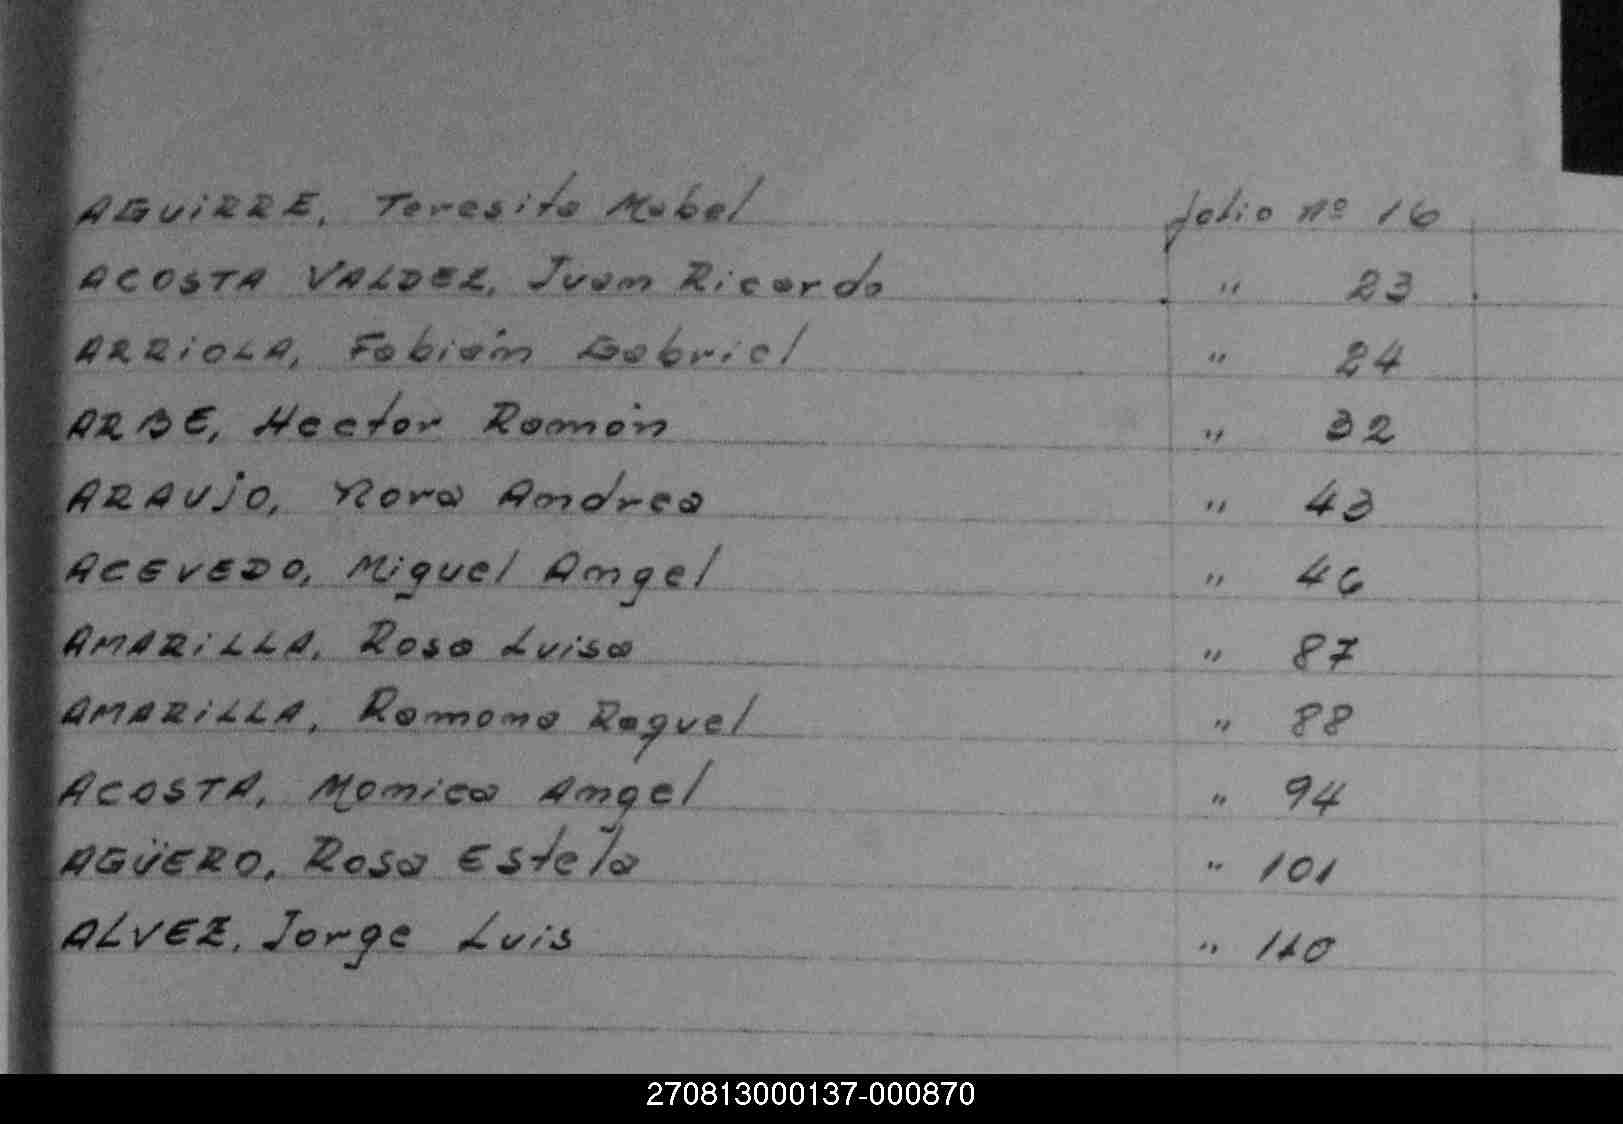 AGUiRRE, Teresita Mabel folio nº 16
ACOSTA VALDEZ, Juan Ricardo " 23
ARRiOLA, Fabián Gabriel " 24
ARBE, Hector Ramón " 32
ARAUjO, Nora Andrea " 43
ACEVEDO, Miguel Angel " 46
AMARiLLA, Rosa Luisa " 87
AMARiLLA, Ramona Raquel " 88
ACOSTA, Monica Angel " 94
AGÜERO, Rosa Estela " 101
ALVEZ, Jorge Luis " 110
270813000137-000870